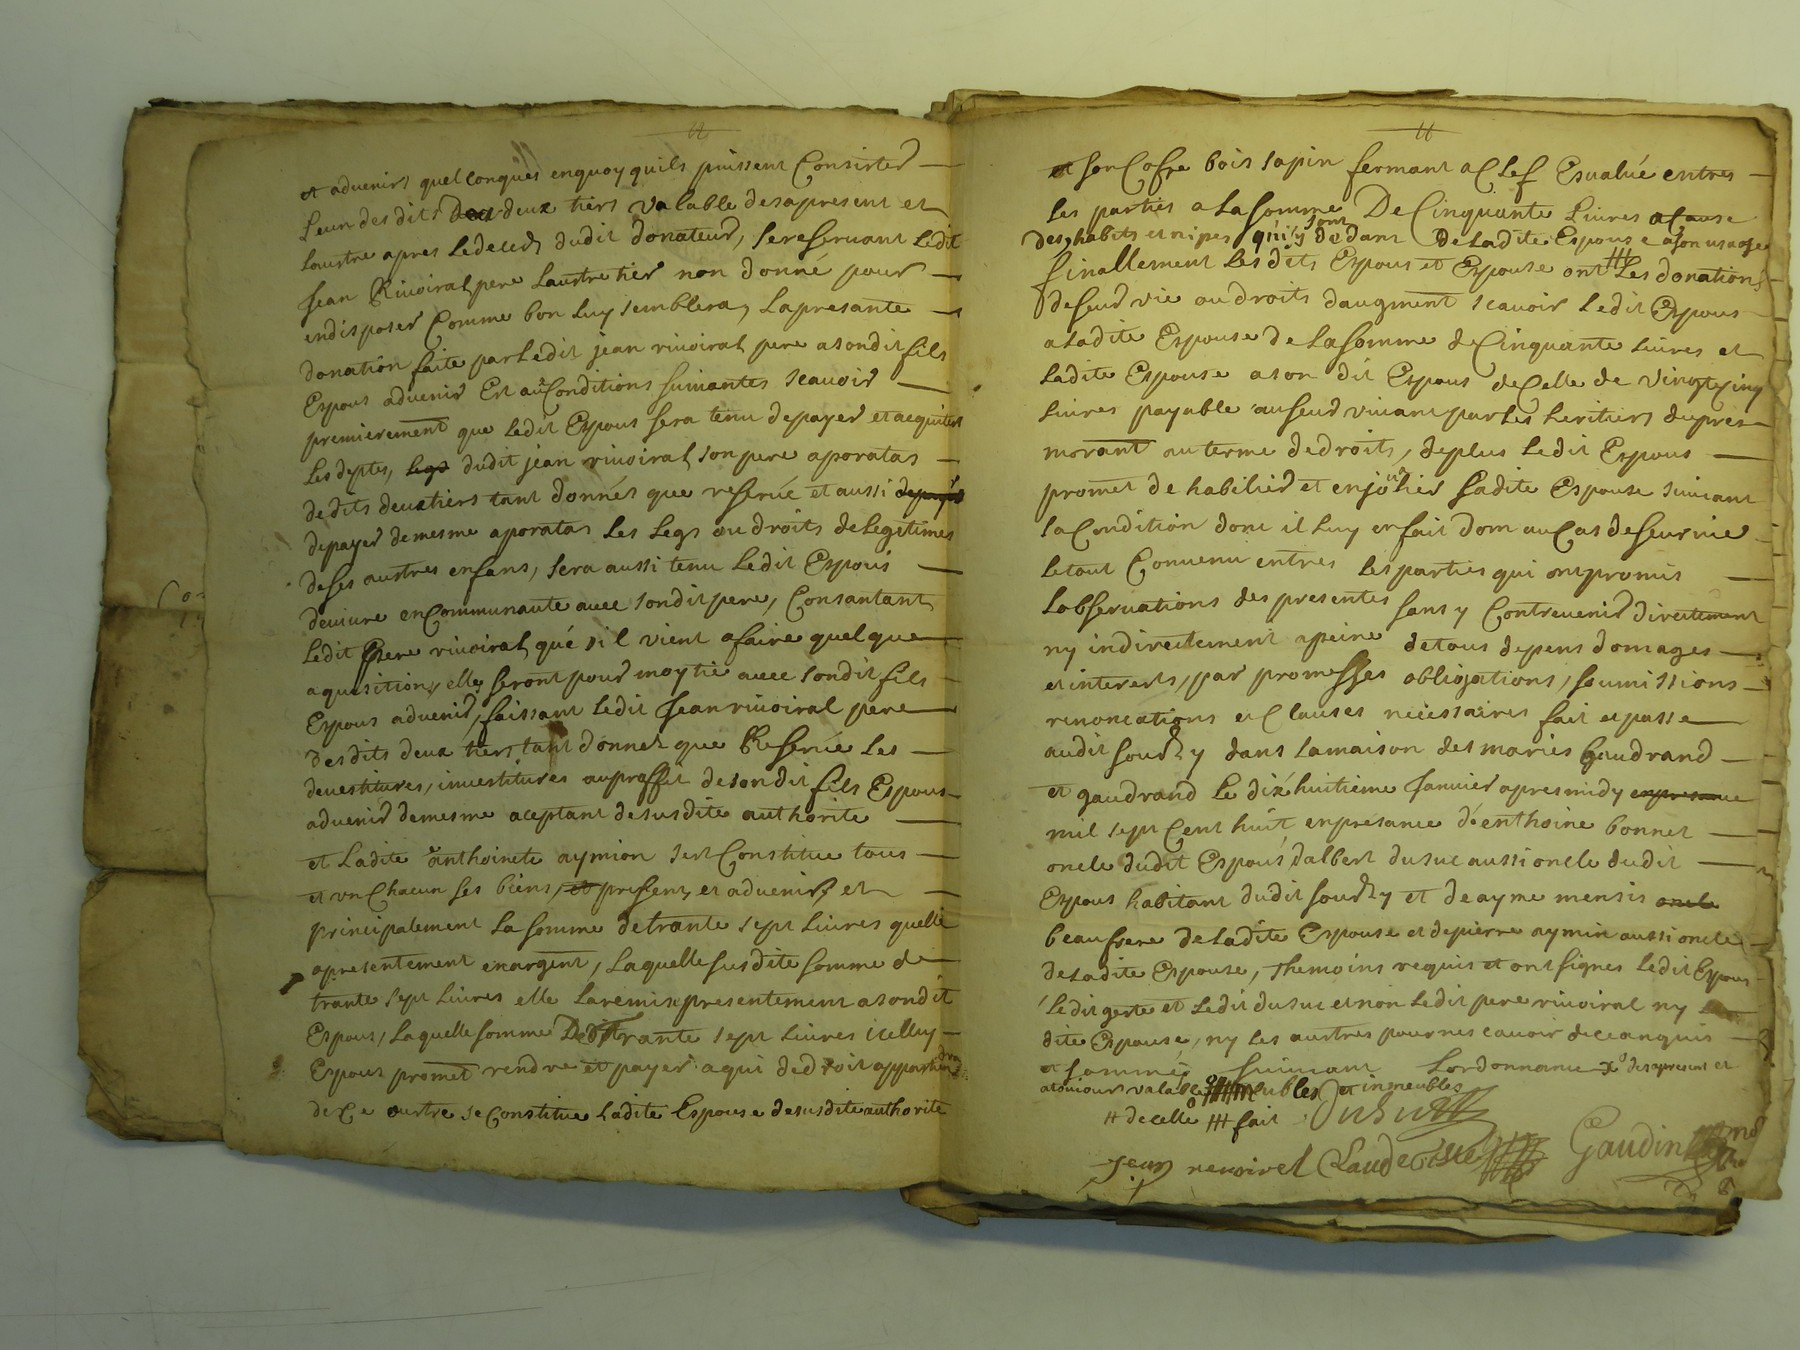 et advenirs quelconques enquoy quils puissent Consister
Leun des dits deux tiers valable desapresent et
Laustre apres Ledeceds dudit donateur, se reservant Ledit
Jean Rivoirat pere Laustre tier non donné pour
en disposer Comme bon Luy semblera, Lapresante
donation faite par Ledit jean rivoirat pere asondit fils
Espous advenir Est aux Conditions suivantes scavoir
premierement que Ledit Espous sera tenu depayer et acquiter
Les deptes, legs dudit jean rivoirat son pere aporatas
de dits deux tiers tant donnés que reservé et aussi depayer
depayer demesme aporatas Les Legs ou droits de Legitimes
de ses austres enfans, sera aussi tenu Ledit Espous
devivre en Communaute avec sondit pere, Consantant
Ledit Pere rivoirat qué sil vient afaire quelque
aquisition, elles seront pour moytie avec sondit fils
Espous advenir, faissant Ledit Jean rivoirat pere
desdits deux tiers tant donnet que Reservée Les
devestitures, investitures au proffit de sondit fils Espous
advenir demesme aceptant desusdite authorite
et Ladite anthoinete aymion sest Constitue tous
et un Chacun ses biens, et pressent, et advenirs, et
principalement La somme detrante sept Livres quelle
apresentement enargent, Laquelle susdite somme de
trante sept Livres elle Laremise presentement asondit
Espous, Laquelle somme De trante sept Livres icelluy
Espous promet rendre et payer aqui dedroit appartiendra
de Ce oustre se Constitue Ladite Espouse desusdite authorite
et son Cofre bois sapin fermant a Clef Esvalué entres
Les parties a La somme De Cinquante Livres a Cause
des habits et nipes qui sont dedant De Ladite Espouse a son usage
finallement Les dits Espous et Espouse ont Les donations
de survie ou droits daugment scavoir Ledit Espous
a Ladite Espouse de La somme de Cinquante Livres et
Ladite Espouse a son dit Espous de Celle de vingt cinq
Livres payable au survivant par Les heritiers du pres
morant au terme dedroits, deplus Ledit Espous
promet de habilier et enjoulier sadite Espouse suivant
sa Condition dont il Luy en fait dom au Cas de survie
Letout Convenu entres Les parties qui ont promis
Lobservations des presentes sans y Contrevenir directement
ny indirectement apeine de tous depens domages
et interests, par promesses obligations, soumissions
renonciations et Clauses necessaires fait et passe
audit sourzy dans Lamaison des maries gaudrand
et gaudrand Le dix huitieme Janvier apres midy enpresance
mil sept Cent huit enpresance de enthoine bonnet
oncle dudit Espous dalbert dusuc aussi oncle dudit
Espous habitant dudit sourzy et de ayme mensis oncle
beaufrere de Ladite Espouse et de pierre aymin aussi oncle
de Ladite Espouse, themoins requis et ont signes Ledit Espous
Ledit geste et Ledit dusuc et non Ledit pere rivoirat ny
dite Espouse, ny Les austres pour ne scavoir de ce anquis
et sommés suivant Lordonnance desapresent et
atoujours valable meubles et inmeubles
decelle fait Dusuc
Jean reuoirel Claude Gaudin